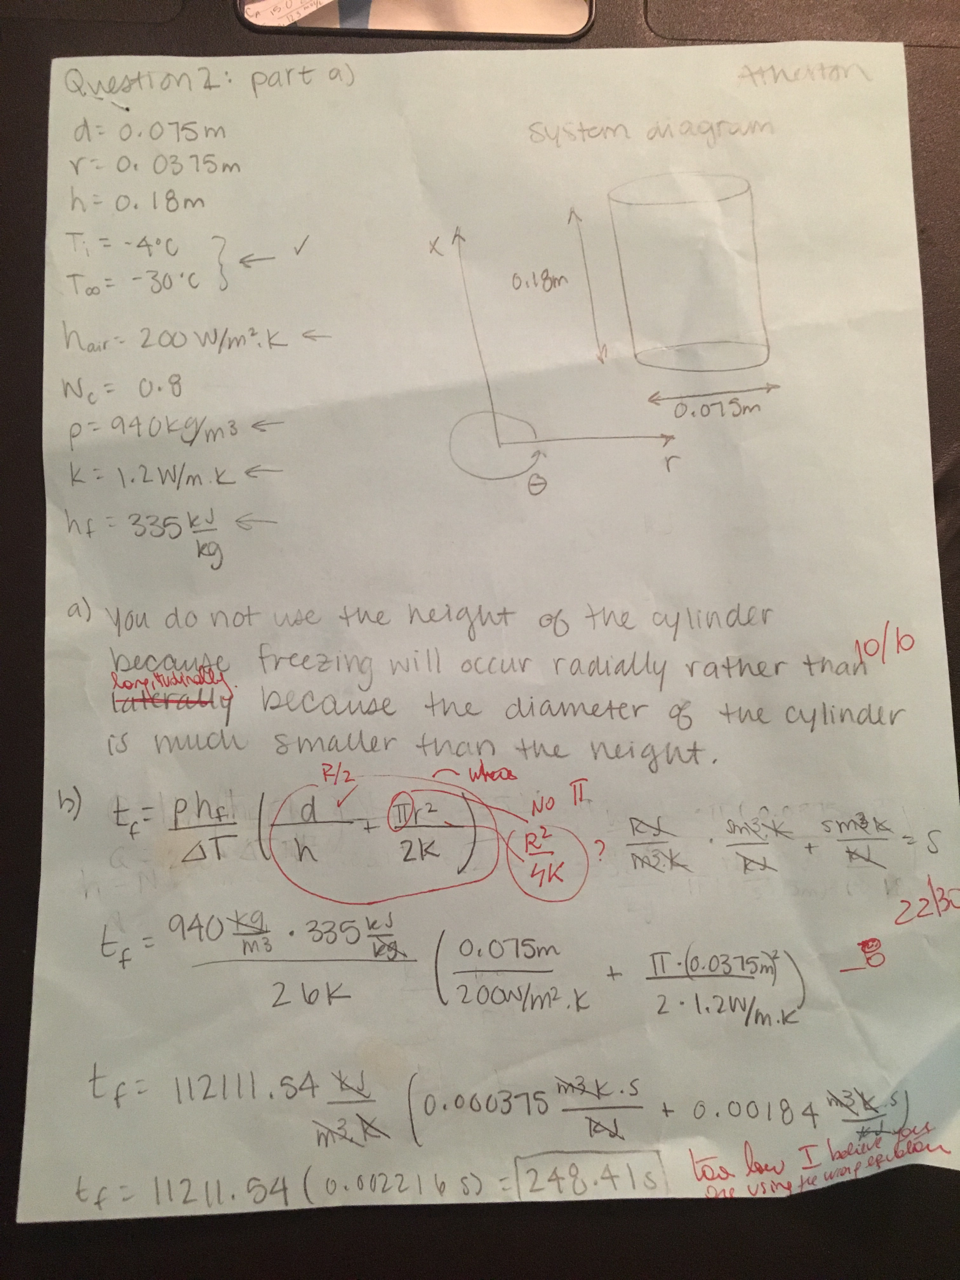 Question 2: part a)
Atherton
d = 0.075m
r = 0.0375m
h = 0.18m
Ti = -4°C
T∞ = -30°C
} ← ✓
hair = 200 W/m²·K ←
Wc = 0.8
ρ = 940kg/m3 ←
k = 1.2W/m·K ←
hf = 335 kJ/kg ←
system diagram
x
0.18m
0.075m
r
θ
a) you do not use the height of the cylinder
because freezing will occur radially rather than
10/10
longitudinally
laterally because the diameter of the cylinder
is much smaller than the height.
R/2
where
NO π
b) tf = ρhf/ΔT (d/h + πr²/2K)
R²/4K ?
kJ/m3·K · sm3·K/kJ + sm3K/kJ = s
22/30
tf = 940 kg/m3 · 335 kJ/kg / 26K (0.075m/200W/m²·K + π·(0.0375m)²/2·1.2W/m·K)
tf = 112111.54 kJ/m3·K (0.000375 m3K·s/kJ + 0.00184 m3K·s/kJ)
tf = 11211.54 (0.002216 s) = 248.41s
too low I believe you
are using the wrong equation